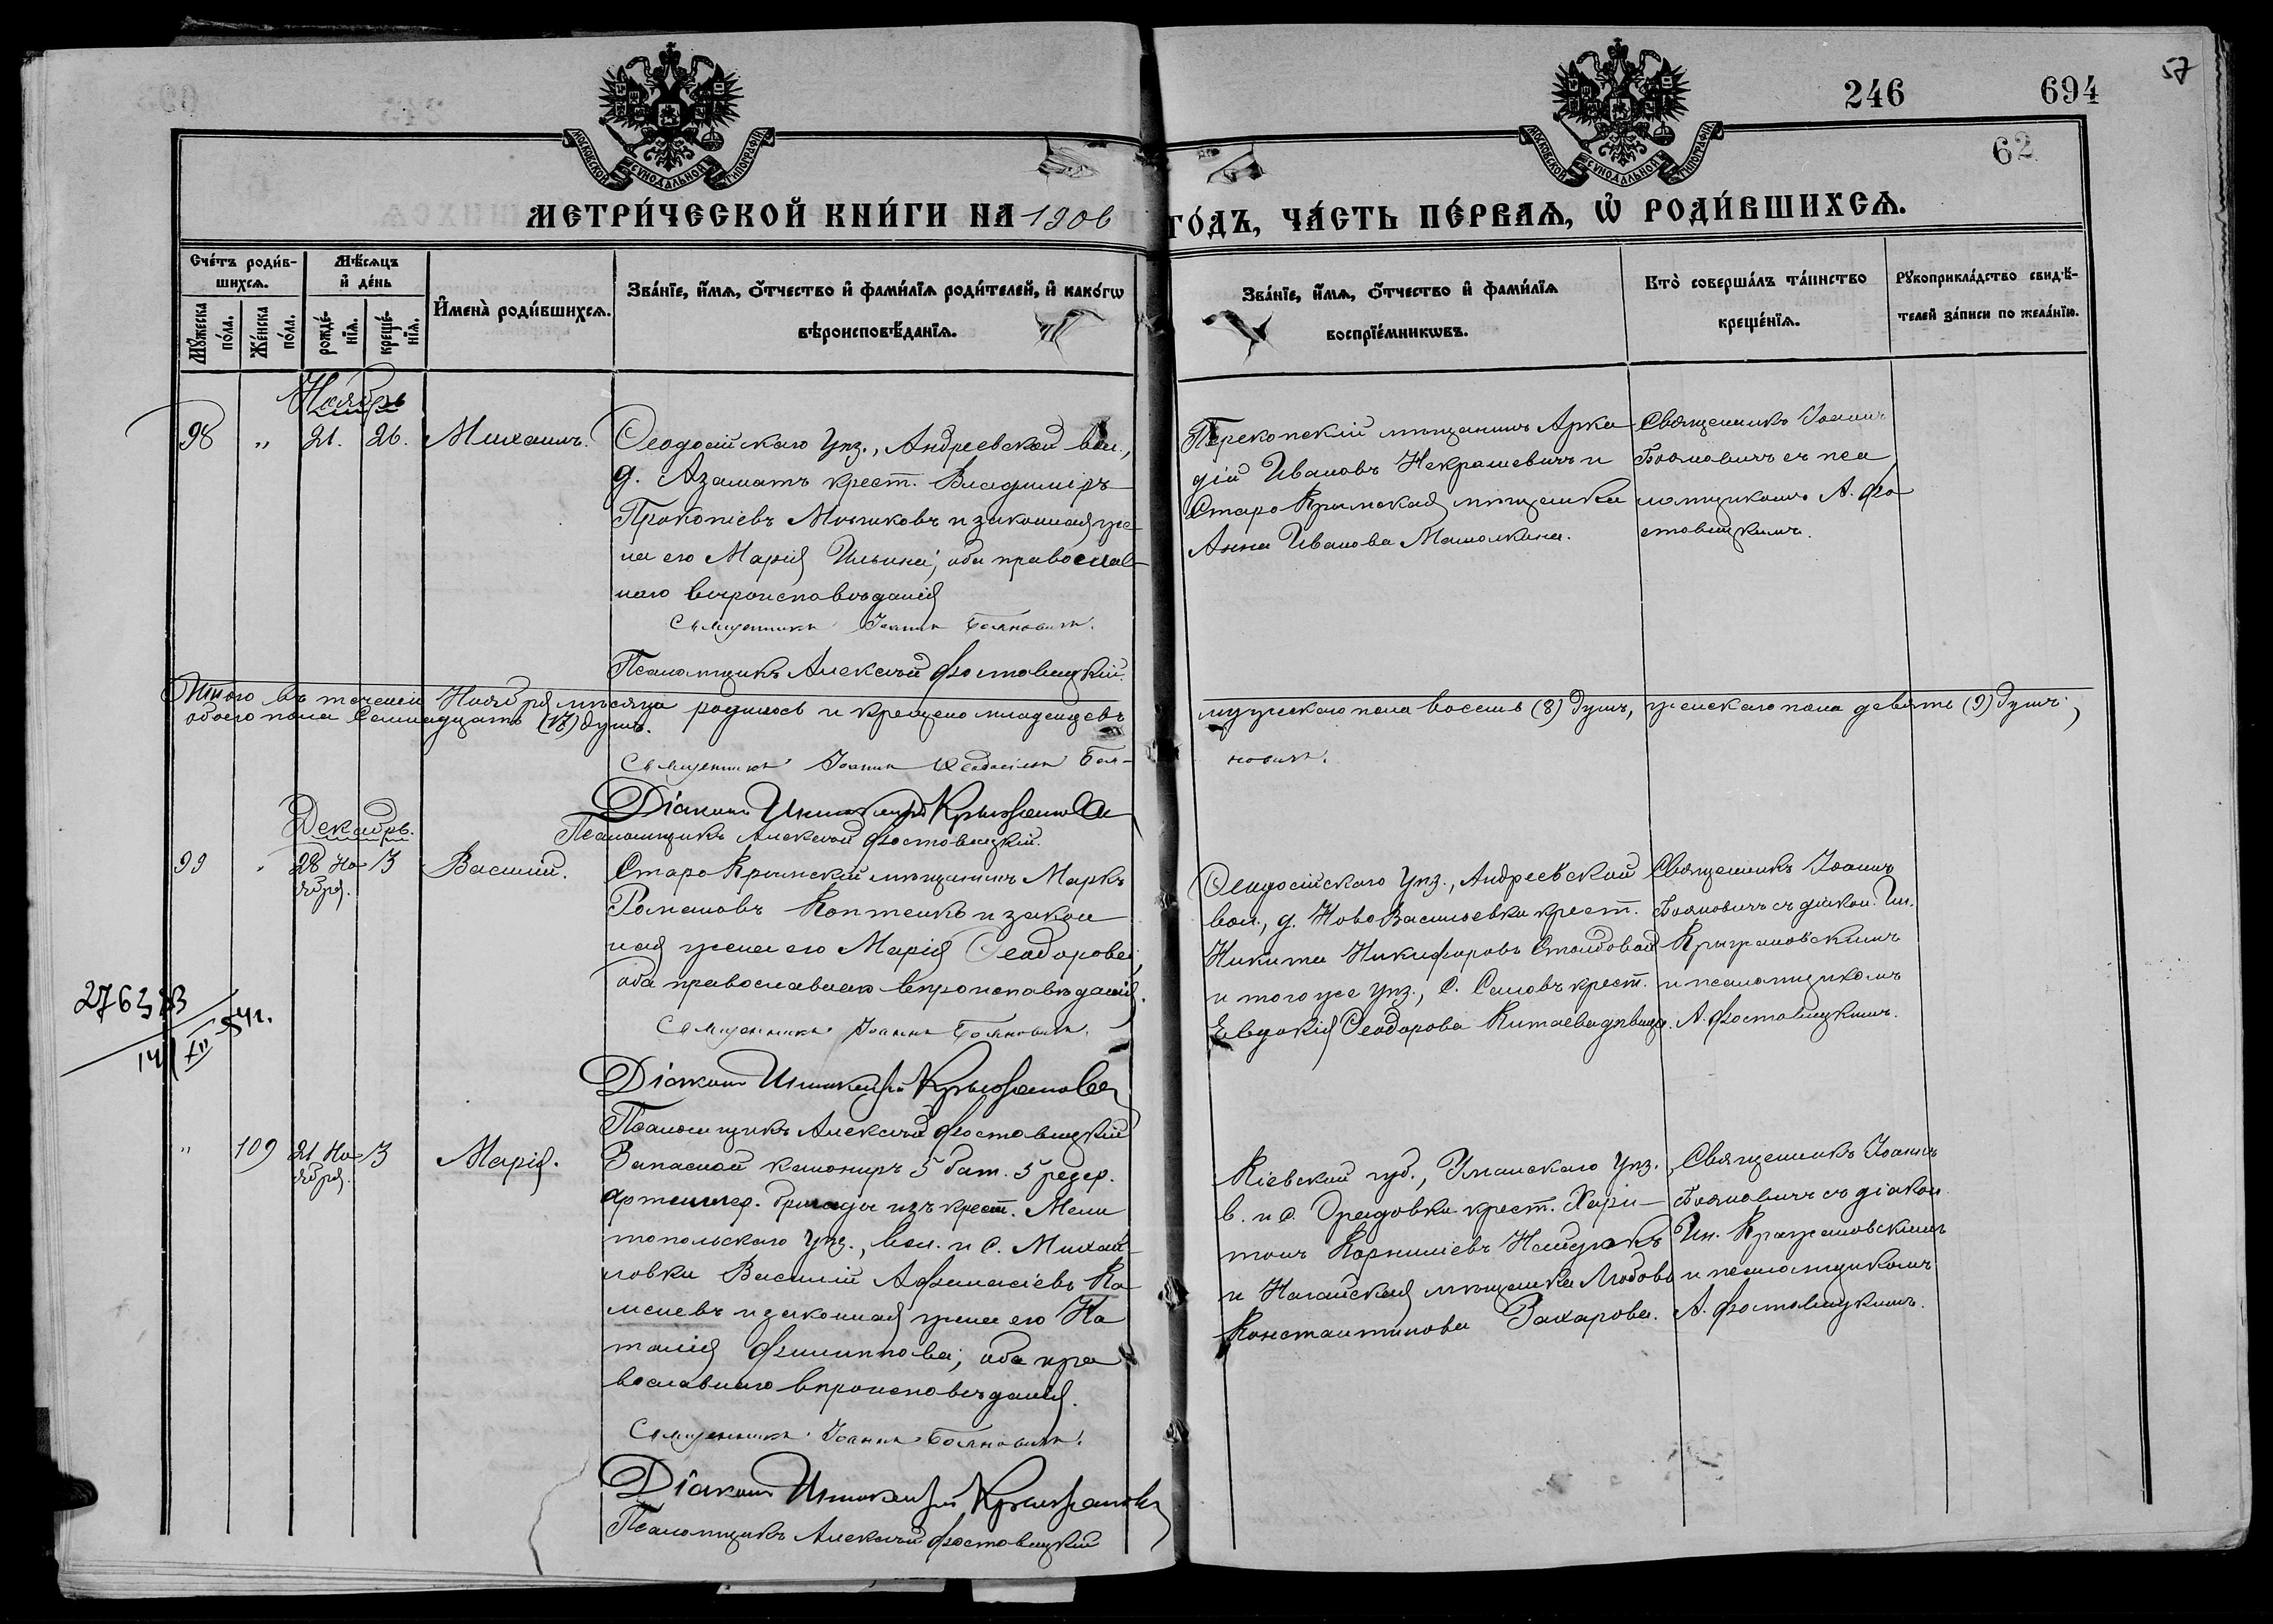 246 694 57
62
МОСКОВСКОЙ СѴНОДАЛЬНОЙ ТИПОГРАФІИ
МОСКОВСКОЙ СѴНОДАЛЬНОЙ ТИПОГРАФІИ
МЕТРИ́ЧЕСКОЙ КНИ́ГИ НА 1906 ГО́ДЪ, ЧА́СТЬ ПЕ́РВАѦ, Ѡ҆ РОДИ́ВШИХСѦ.
Сче́тъ роди́в-
шихсѧ.
Мꙋ́жеска по́ла.
Же́нска по́ла.
Мѣ́сѧцъ
и҆ де́нь
рожде́-
нїѧ.
креще́-
нїѧ.
И҆мена̀ роди́вшихсѧ.
Зва́нїе, и҆́мѧ, ѻ҆́тчество и҆ фами́лїѧ роди́телей, и҆ како́гѡ
вѣроисповѣ́данїѧ.
Зва́нїе, и҆́мѧ, ѻ҆́тчество и҆ фами́лїѧ
воспрїе́мникѡвъ.
Кто̀ соверша́лъ та́инство
креще́нїѧ.
Рꙋкоприкла́дство свидѣ́-
телей за́писи по жела́нїю.
Ноябрь
98 „ 21. 26. Михаилъ.
Ѳеодосійскаго уѣз., Андреевской вол.,
д. Азаматъ крест. Владиміръ
Прокопіевъ Мышковъ и законная же-
на его Марія Ильина, оба православ-
наго вѣроисповѣданія
Священникъ Іоаннъ Бояновичъ.
Псаломщикъ Алексѣй Фостовицкій.
Перекопскій мѣщанинъ Арка
дій Ивановъ Некрашевичъ и
Старо Крымская мѣщанка
Анна Иванова Мамолкина.
Священникъ Іоаннъ
Бояновичъ съ пса
ломщикомъ А. Фо
стовицкимъ.
Итого въ теченіи Ноября мѣсяца родилось и крещено младенцевъ мужескаго пола восемь (8) душъ, женскаго пола девять (9) душъ,
обоего пола Семнадцать (17) душъ.
Священникъ Іоаннъ Ѳеодосіевъ Боя-
новичъ.
Діаконъ Иннокентій Крыжановскій
Псаломщикъ Алексѣй Фостовицкій.
Декабрь.
99 „ 28 Но-
ября. 3 Василій.
Старо Крымскій мѣщанинъ Маркъ
Романовъ Коптенко и закон
ная жена его Марія Ѳеодорова,
оба православнаго вѣроисповѣданія.
Священникъ Іоаннъ Бояновичъ.
Діаконъ Иннокентій Крыжановск
Псаломщикъ Алексѣй Фостовицкій
Ѳеодосійскаго уѣз., Андреевской
вол., д. НовоВасильевки крест.
Никита Никифоровъ Столбовой
и того же уѣз., с. Саловъ крест.
Евдокія Ѳеодорова Китаева дѣвица.
Священникъ Іоаннъ
Бояновичъ съ діакон. Ин.
Крыжановскимъ
и псаломщикомъ
А. Фостовицкимъ.
„ 109 21 Но-
ября. 3 Марія.
Запасной канониръ 5 бат. 5 резер.
артиллер. бригады изъ крест. Мели
топольскаго уѣз., вол. и с. Михай-
ловки Василій Афанасіевъ Ка
меневъ и законная жена его На
талія Филиппова, оба пра
вославнаго вѣроисповѣданія.
Священникъ Іоаннъ Бояновичъ.
Діаконъ Иннокентій Крыжановск
Псаломщикъ Алексѣй Фостовицкій
Кіевской губ., Уманскаго уѣз.
в. и с. крест. Хари-
тонъ Корниліевъ
и Ногайская мѣщанка Любовь
Константинова Захарова.
Священникъ Іоаннъ
Бояновичъ съ діакон
Ин. Крыжановскимъ
и псаломщикомъ
А. Фостовицкимъ.